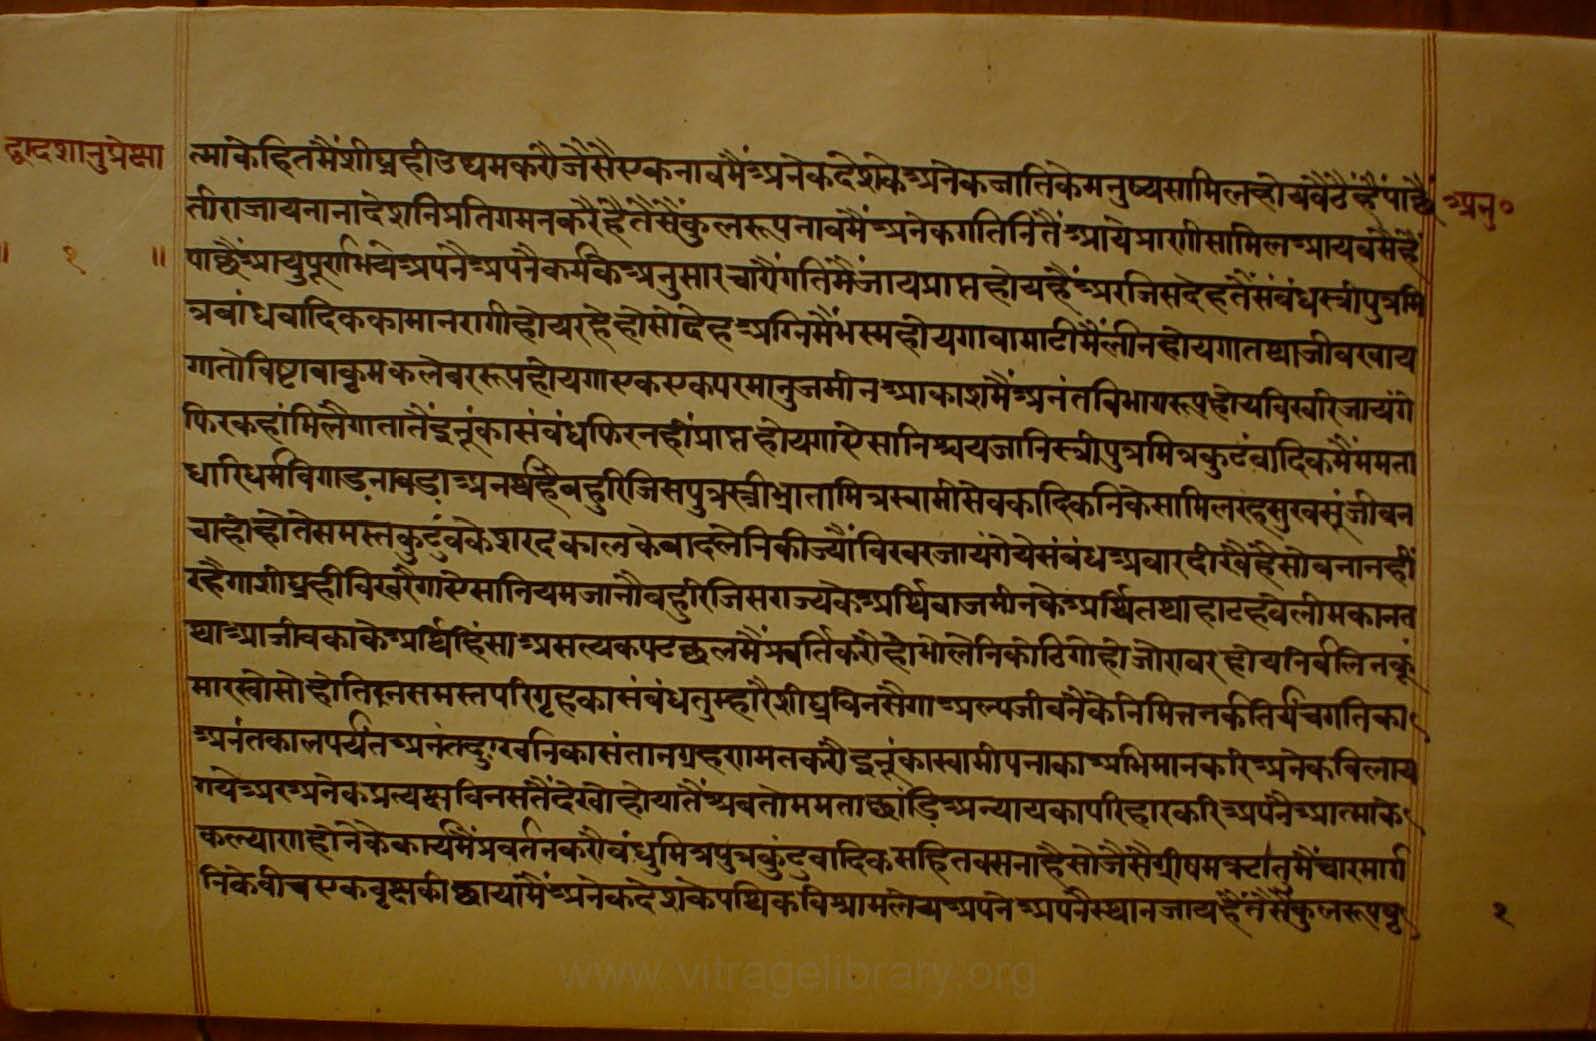 द्वादशानुप्रेक्षा
॥ १ ॥
अनु०
त्माकेहितमैंशीघ्रहीउद्यमकरौजैसैंएकनावमैंअनेकदेशकेअनेकजातिकेमनुष्यसामिलहोयबैठैंहैंपाछैं
तीराजायनानादेशनिप्रतिगमनकरैंहैंतैसैंकुलरूपनावमैंअनेकगतिनितैंआयेप्राणीसामिलआयबसैहैं
पाछैंआयुपूर्णभयेअपनैअपनैकर्मकेअनुसारचारौंगतिमैंजायप्राप्तहोयहैंअरजिसदेहतैंसंबंधस्त्रीपुत्रमि
त्रबांधवादिककामानरागीहोयरहेहोसोदेहअग्निमैंभस्महोयगावामाटीमैंलीनहोयगातथाजीवखाय
गातोविष्टावाकृमकलेवररूपहोयगाएकएकपरमानुजमीनआकाशमैंअनंतविभागरूपहोयविखरिजायंगे
फिरकहांमिलैगातातैंइनूंकासंबंधफिरनहींप्राप्तहोयगाऐसानिश्चयजानिस्त्रीपुत्रमित्रकुटंबादिकमैंममता
धारिधर्मविगाडनाबडाअनर्थहैबहुरिजिसपुत्रस्त्रीभ्रातामित्रस्वामीसेवकादिकनिकेसामिलरहसुखसूंजीवन
चाहोहोतेसमस्तकुटुंबकेशरदकालकेबादलेनिकीज्यौंविखरजायंगेयेसंबंधअवारदीखैहैसोबनानहीं
रहैगाशीघ्रहीविखरैगाऐसानियमजानौबहुरिजिसराज्यकेअर्थिवाजमीनकेअर्थितथाहाटहवेलीमकानत
थाआजीवकाकेअर्थिहिंसाअसत्यकपटछलमैंप्रवर्तिकरोहोभोलेनिकोठिगोहोजोरावरहोयनिर्बलिनकूं
मारखोसोहोतिनसमस्तपरिगृहकासंबंधतुम्हारैशीघ्रविनसैगाअल्पजीवनैकेनिमित्तनर्कतिर्यंचगतिका
अनंतकालपर्यंतअनंतदुःखनिकासंतानग्रहणमतकरौइनूंकास्वामीपनाकाअभिमानकरिअनेकविलाय
गयेअरअनेकप्रत्यक्षविनसतैंदेखोहोयातैंअबतोममताछांडिअन्यायकापरिहारकरिअपनैआत्माके
कल्याणहोनेकेकार्यमैंप्रवर्तनकरौबंधुमित्रपुत्रकुंटुवादिकसहितबसनाहैसोजैसैग्रीषममैंचारमार्ग
निकेवीचएकवृक्षकीछायामैंअनेकदेशकेपथिकविश्रामलेयअपनेअपनैस्थानजायहैंतैसैंकुलरूपवृ
१
www.vitragelibrary.org